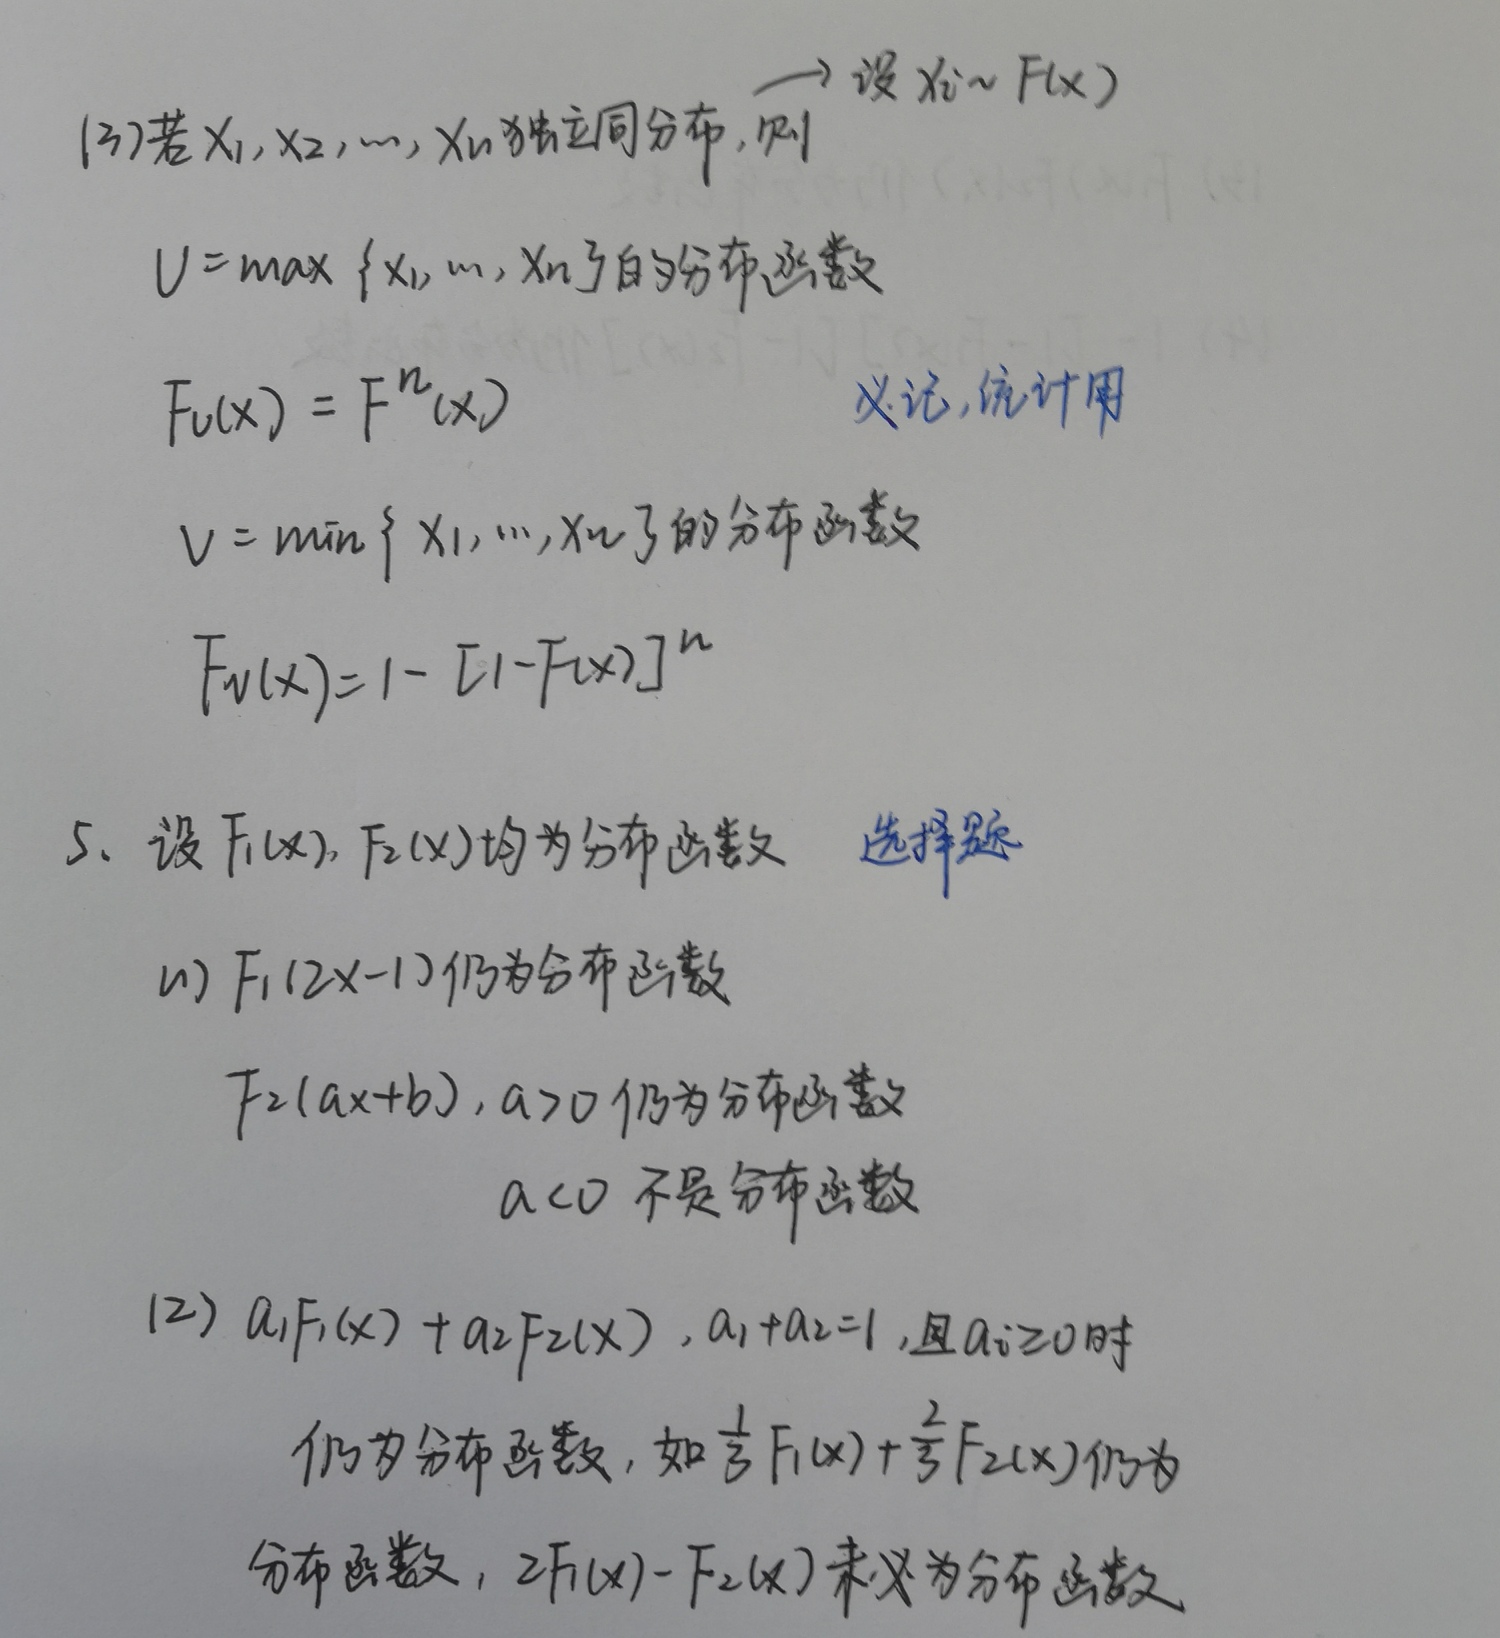 → 设 Xi ~ F(x)
(3) 若 X1, X2, …, Xn 独立同分布, 则
U = max {X1, …, Xn} 的分布函数
FU(x) = F^n(x) 必记, 统计用
V = min { X1, …, Xn } 的分布函数
FV(x) = 1 - [1-F(x)]^n
5、设 F1(x), F2(x) 均为分布函数 选择题
(1) F1(2x-1) 仍为分布函数
F2(ax+b), a>0 仍为分布函数
a<0 不是分布函数
(2) a1F1(x) + a2F2(x), a1+a2=1, 且 ai≥0 时
仍为分布函数, 如 1/3 F1(x) + 2/3 F2(x) 仍为
分布函数, 2F1(x) - F2(x) 未必为分布函数